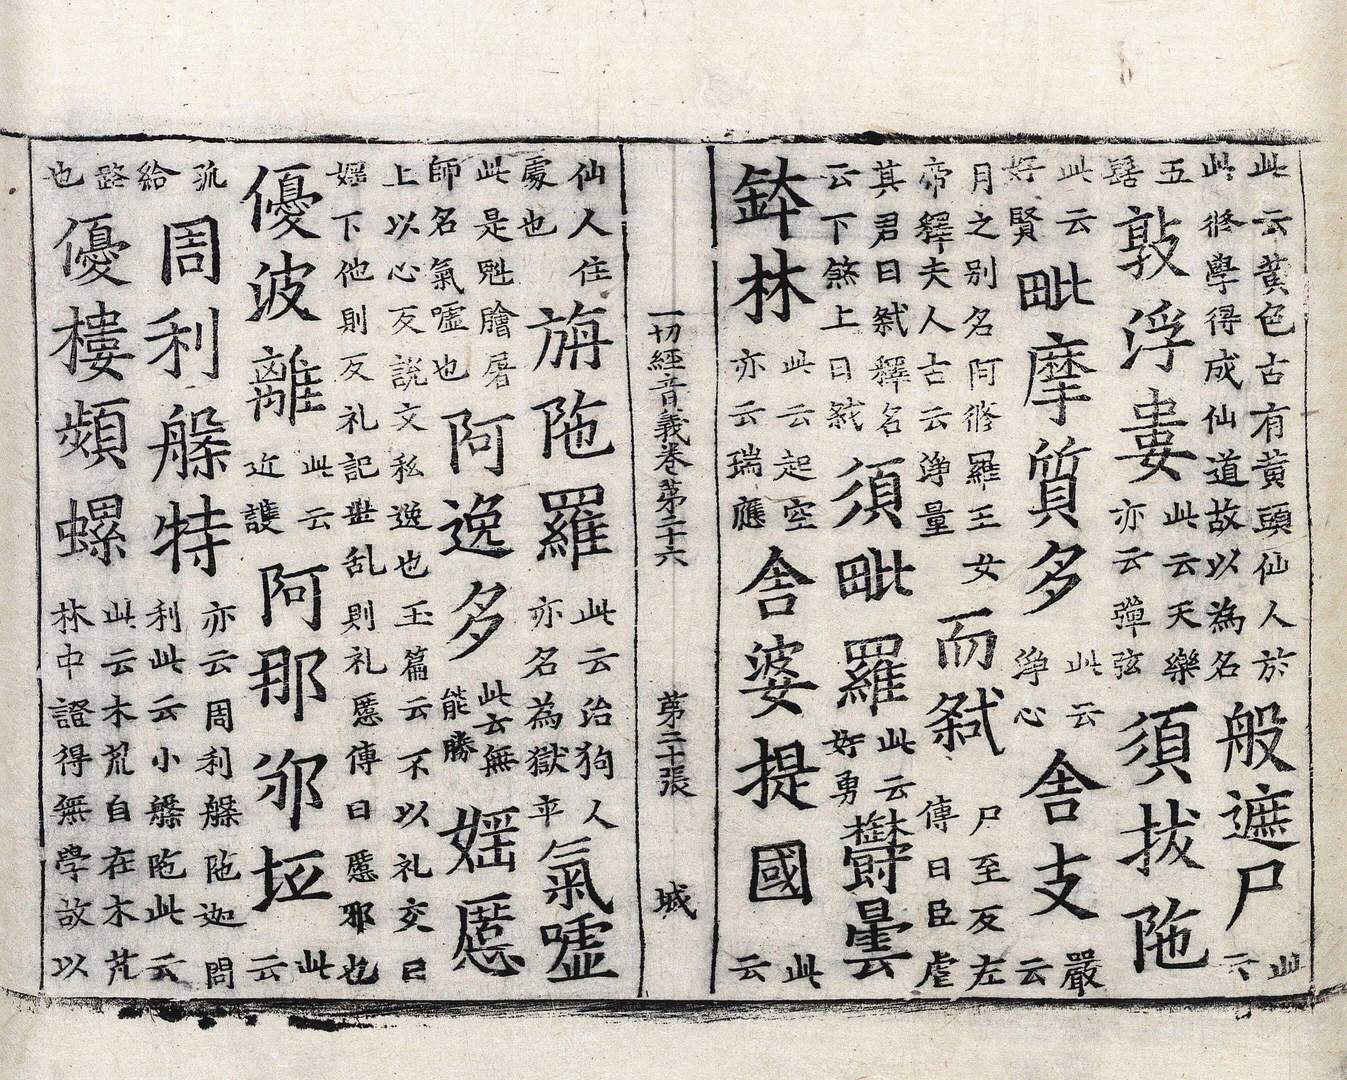 此云黃色古有黃頭仙人於
此修學得成仙道故以為名
般遮尸
此
云
五
髻
敦浮婁
此云天樂
亦云彈弦
須拔陁
此云
好賢
毗摩質多
此云
淨心
舍支
嚴
云
月之别名阿修羅王女
帝釋夫人古云淨量
而弒
尸至反左
傳曰臣虐
其君曰弒釋名
云下煞上曰弒
須毗羅
此云
好勇
鬱曇
鉢林
此云起空
亦云瑞應
舍婆提國
此
云
一切經音義卷第二十六 第二十張 城
仙人住
處也
旃陁羅
此云治狗人
亦名為獄平
氣嘘
此是魁膾屠
師名氣嘘也
阿逸多
此云無
能勝
婬慝
上以心反說文私逸也玉篇云不以礼交曰
婬下他則反礼記世乱則礼慝傳曰慝邪也
優波離
此云
近護
阿那邠坻
此
云
孤
給
周利槃特
亦云周利槃陁迦問
利此云小槃陁此云
路
也
優樓頻螺
此云木荒自在木苽
林中證得無學故以